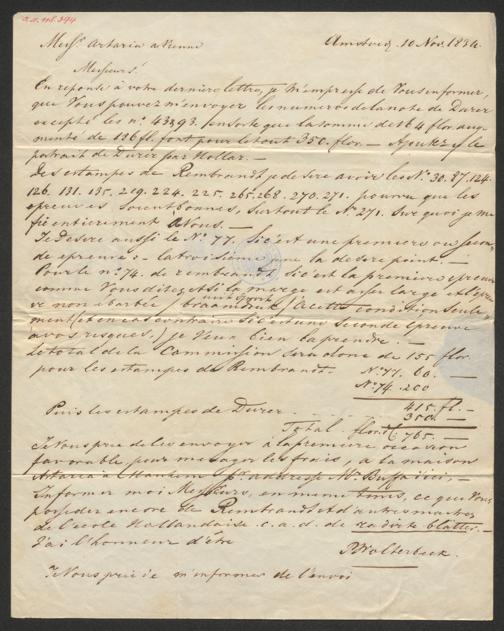 Mess.rs Artaria a Vienne Amsterd. 10 Nov. 1834.
Messieurs!
En reponse à votre derniere lettre, je m'empresse de Vous informer,
que Vous pouvez m'envoyer les numeros de la note de Durer
excepté les no. 43 &93. ensorte que la somme de 164 flor aug-
menté de 186 fl. font pour le tout 350. flor. — Ajoutez y le
portrait de Durer par Hollar. —
Des estampes de Rembrandt je desire avoir les No. 30. 87. 124.
126. 131. 135. 219. 224. 225. 265. 268. 270. 271. pourvu que les
epreuves soient bonnes, surtout le No. 271. Sur quoi je me
fie entierement à Vous. —
Je Desire aussi le No. 77. si c'est une premiere ou secon-
de epreuve: — la troisieme je ne la desire point. —
Pour le no. 74. de rembrandt, si c'est la premiere epreuve
comme Vous dites, et si la marge est assez large et l'epreu-
ve non ebarbée / à cette condition seule-
ment / et en cas contraire si c'est une seconde epreuve
a vos risques, je Veux bien la prendre. —
Le total de la Commission sera donc de 155 flor.
pour les estampes de Rembrandt. No. 77. 60. —
No. 74. 200
415. fl. —
Puis les estampes de Durer 350. —
Total flor. 765. —
Je Vous prie de les envoyer à la premiere occasion
favorable, pour menager les frais, a la maison
Artaria à Manheim pr. addresse Mr. Buffa
Informez moi Messieurs, en meme tems, ce que Vous
possedez encore de Rembrandt et d'autres maitres
de l'ecole Hollandaise c. a. d. de radirte blätter. —
J'ai l'honneur d'être
R Wolterbeek.
Je Vous prie de m'informer de l'envoi